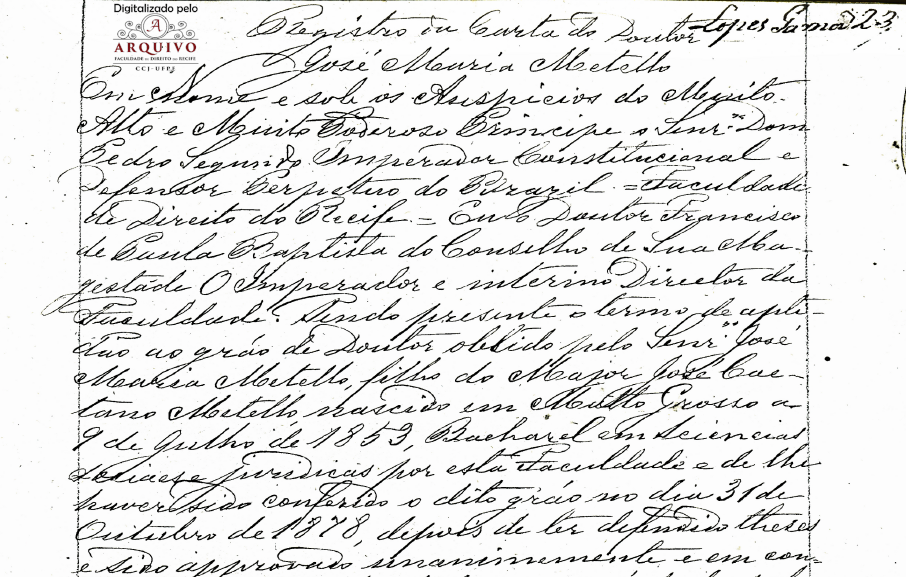 Digitalizado pelo
A
ARQUIVO
FACULDADE DE DIREITO DO RECIFE
CCJ-UFPE
Lopes Gama 23
Registro da Carta do Doutor
José Maria Metello
Em Nome e sob os Auspicios do Muito
Alto e Muito Poderoso Principe o Senr. Dom
Pedro Segundo Imperador Constitucional e
Defensor Perpetuo do Brazil = Faculdade
de Direito do Recife = Eu o Doutor Francisco
de Paula Baptista do Conselho de Sua Ma-
gestade O Imperador e interino Director da
Faculdade. Tendo presente o termo de apti-
dão ao gráo de Doutor obtido pelo Senr. José
Maria Metello, filho do Major José Cae-
tano Metello, nascido em Matto Grosso a
9 de Julho de 1853, Bacharel em sciencias
sociaes e juridicas por esta Faculdade e de lhe
haver sido conferido o dito gráo no dia 31 de
Outubro de 1878, depois de ter defendido theses
e sido approvado unanimemente, e em con-